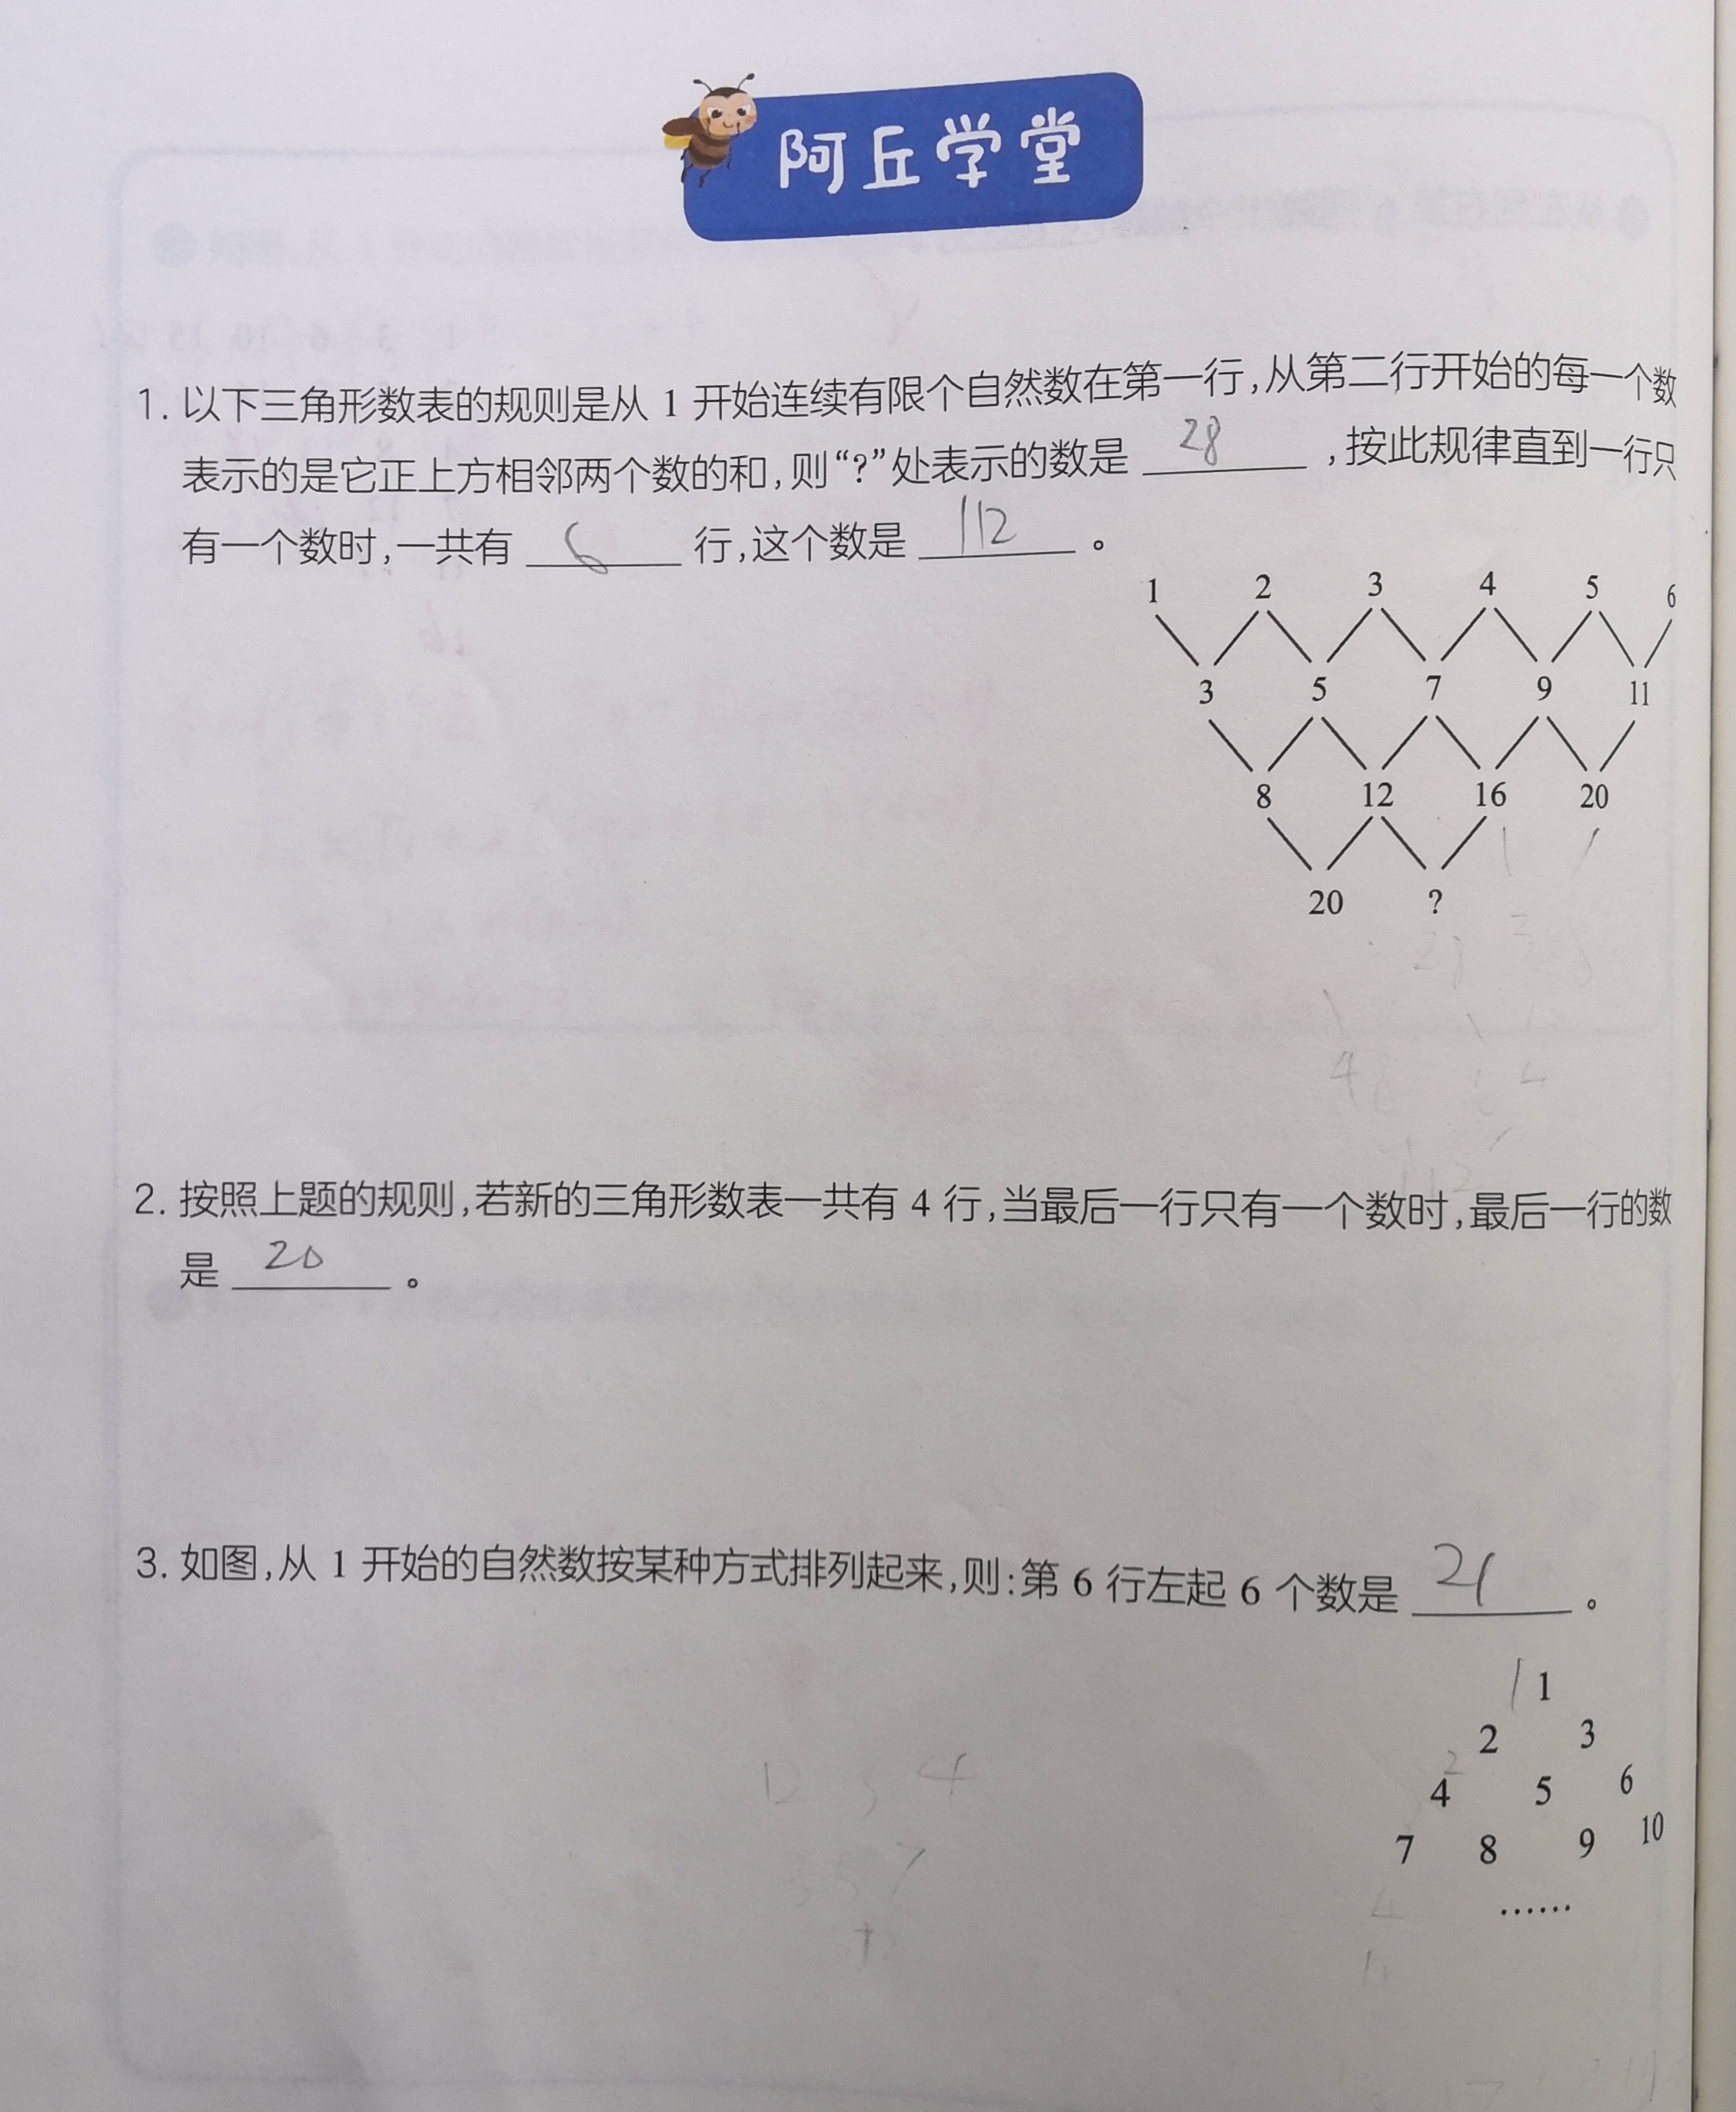 阿丘学堂
1. 以下三角形数表的规则是从 1 开始连续有限个自然数在第一行,从第二行开始的每一个数
表示的是它正上方相邻两个数的和,则“?”处表示的数是 28 ,按此规律直到一行只
有一个数时,一共有 6 行,这个数是 112 。
1 2 3 4 5 6
3 5 7 9 11
8 12 16 20
20 ?
28
48
112
2. 按照上题的规则,若新的三角形数表一共有 4 行,当最后一行只有一个数时,最后一行的数
是 20 。
3. 如图,从 1 开始的自然数按某种方式排列起来,则:第 6 行左起 6 个数是 21 。
1
2 3
4 5 6
7 8 9 10
……